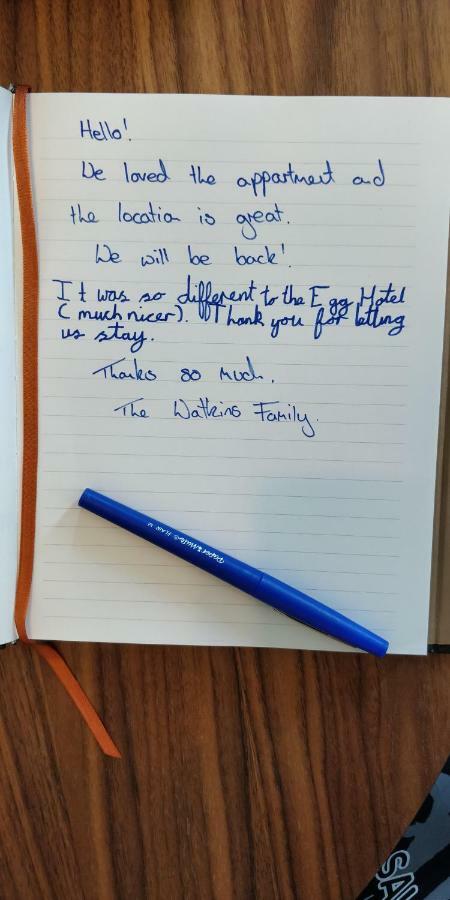 Hello!
We loved the appartment and
the location is great.
We will be back!
It was so different to the Egg Hotel
(much nicer). Thank you for letting
us stay.
Thanks so much.
The Watkins Family.
PaperMate FLAIR M